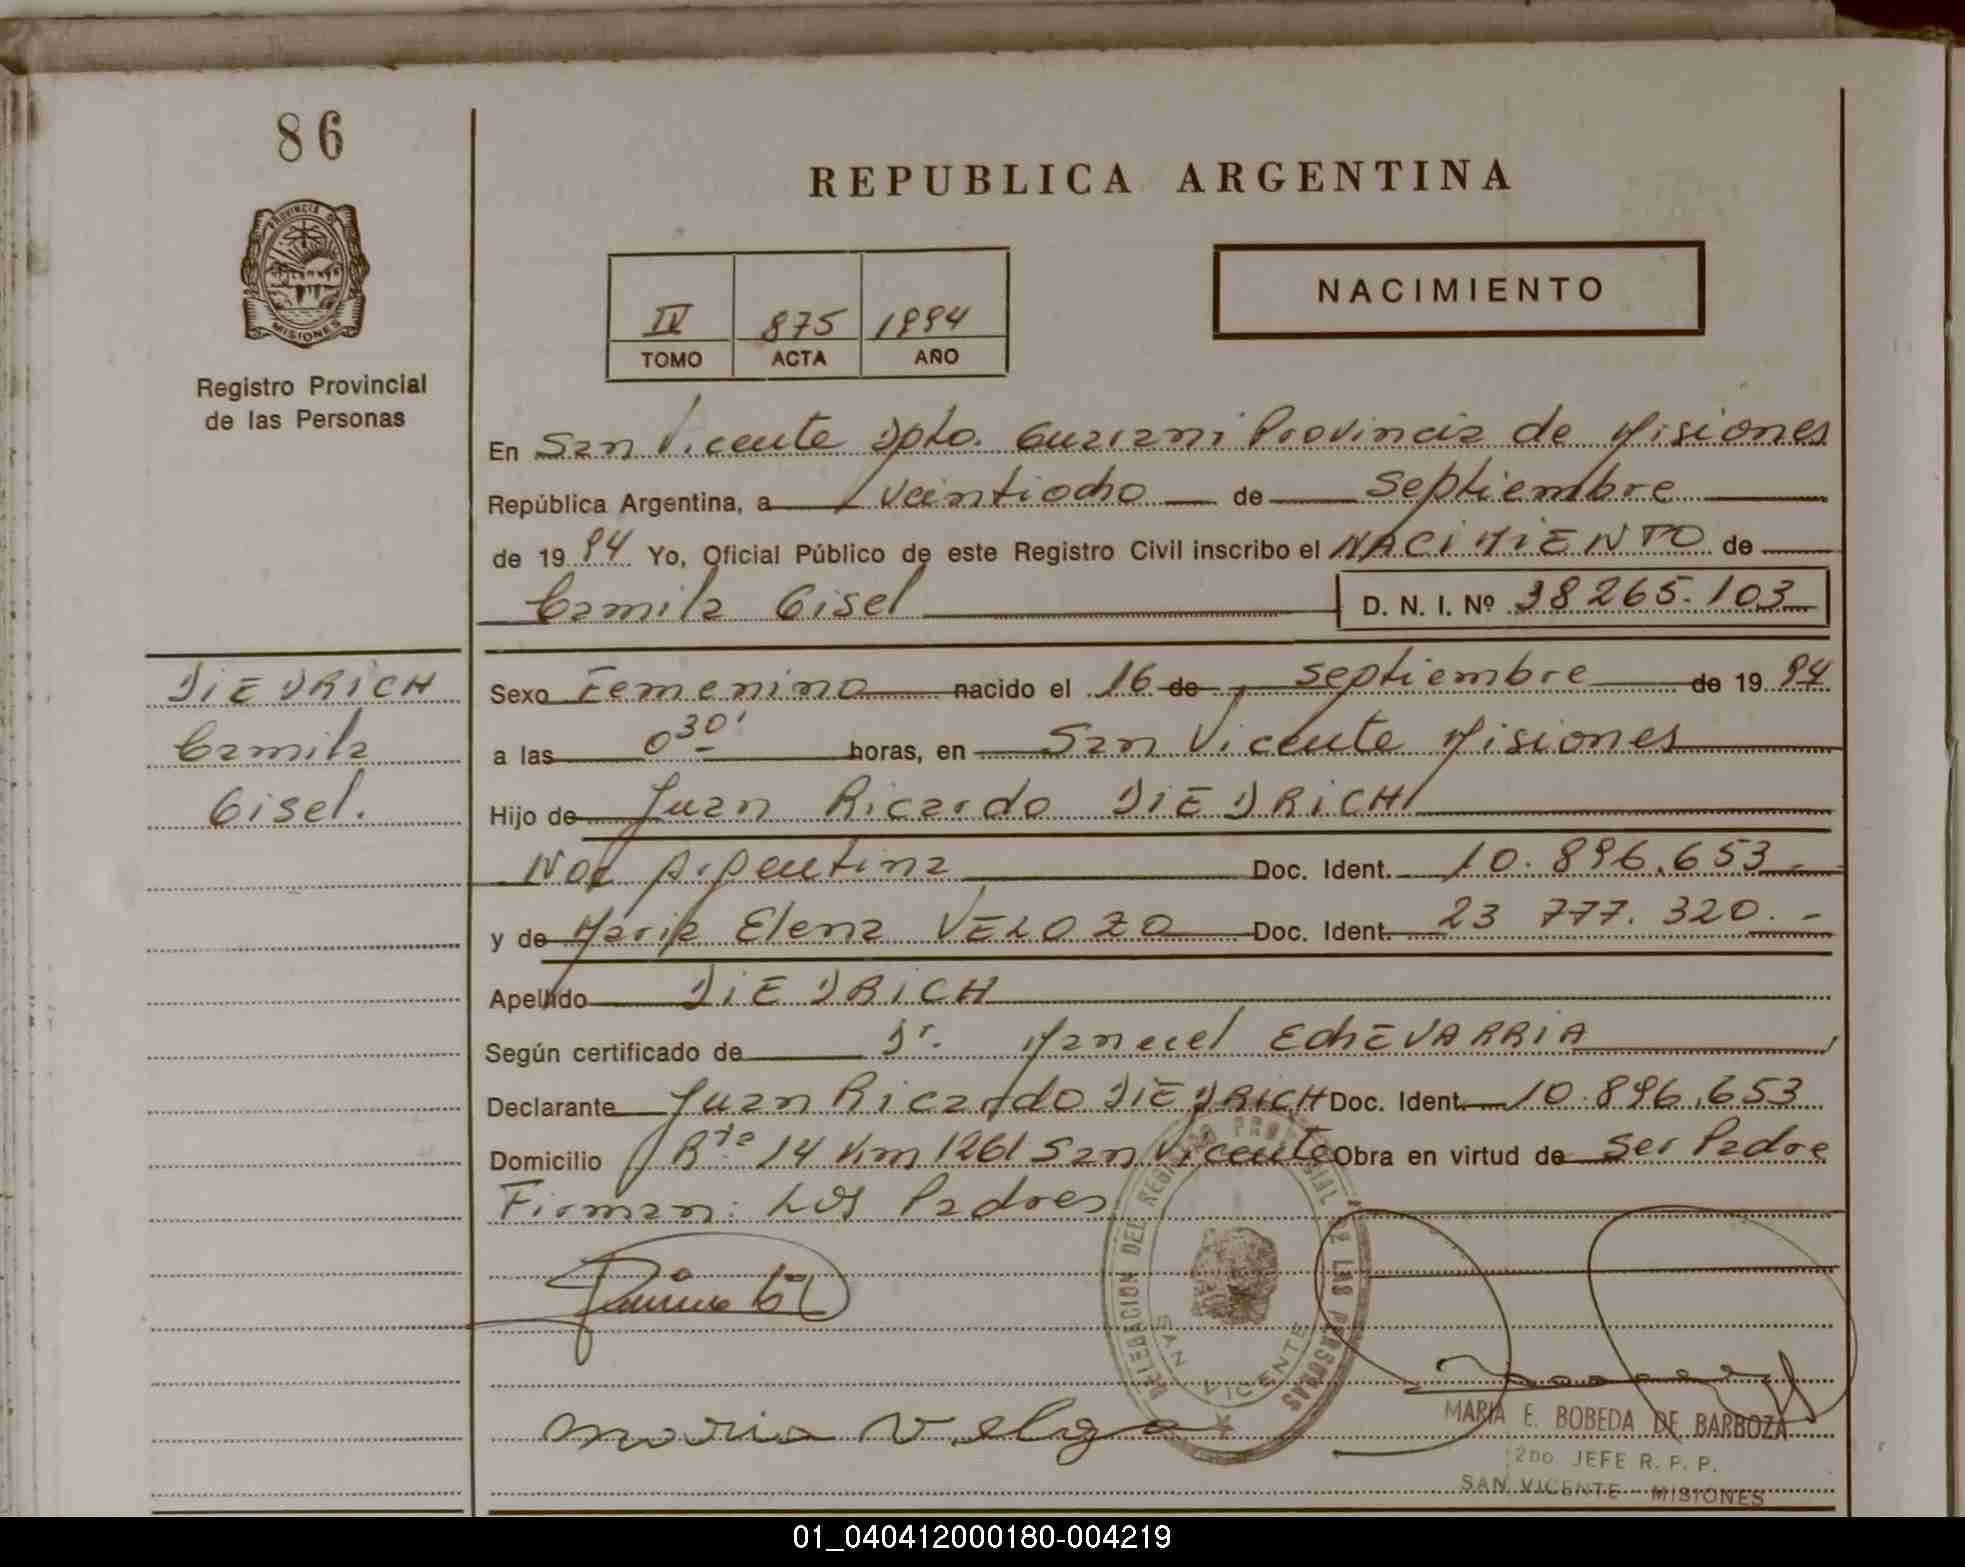 86
PROVINCIA DE
MISIONES
Registro Provincial
de las Personas
REPUBLICA ARGENTINA
IV 875 1994
TOMO ACTA AÑO
NACIMIENTO
En San Vicente Dpto. Guarani Provincia de Misiones
República Argentina, a veintiocho de septiembre
de 1994 Yo, Oficial Público de este Registro Civil inscribo el NACIMIENTO de
Camila Gisel D. N. I. Nº 38265.103
DIEDRICH
Camila
Gisel.
Sexo Femenino nacido el 16 de septiembre de 1994
a las 0 30' horas, en San Vicente Misiones
Hijo de Juan Ricardo DIEDRICH
Nac Argentina Doc. Ident. 10.896.653
y de Maria Elena VELOZO Doc. Ident. 23 777.320.-
Apellido DIEDRICH
Según certificado de Dr. Manuel EchEVARRIA
Declarante Juan Ricardo DIEDRICH Doc. Ident. 10.896.653
Domicilio Rta 14 Km 1261 San Vicente Obra en virtud de ser Padre
Firman: Los Padres
DELEGACION DEL REGISTRO PROVINCIAL DE LAS PERSONAS
SAN VICENTE
maria
MARIA E. BOBEDA DE BARBOZA
2DO. JEFE R. P. P.
SAN VICENTE - MISIONES
01_040412000180-004219